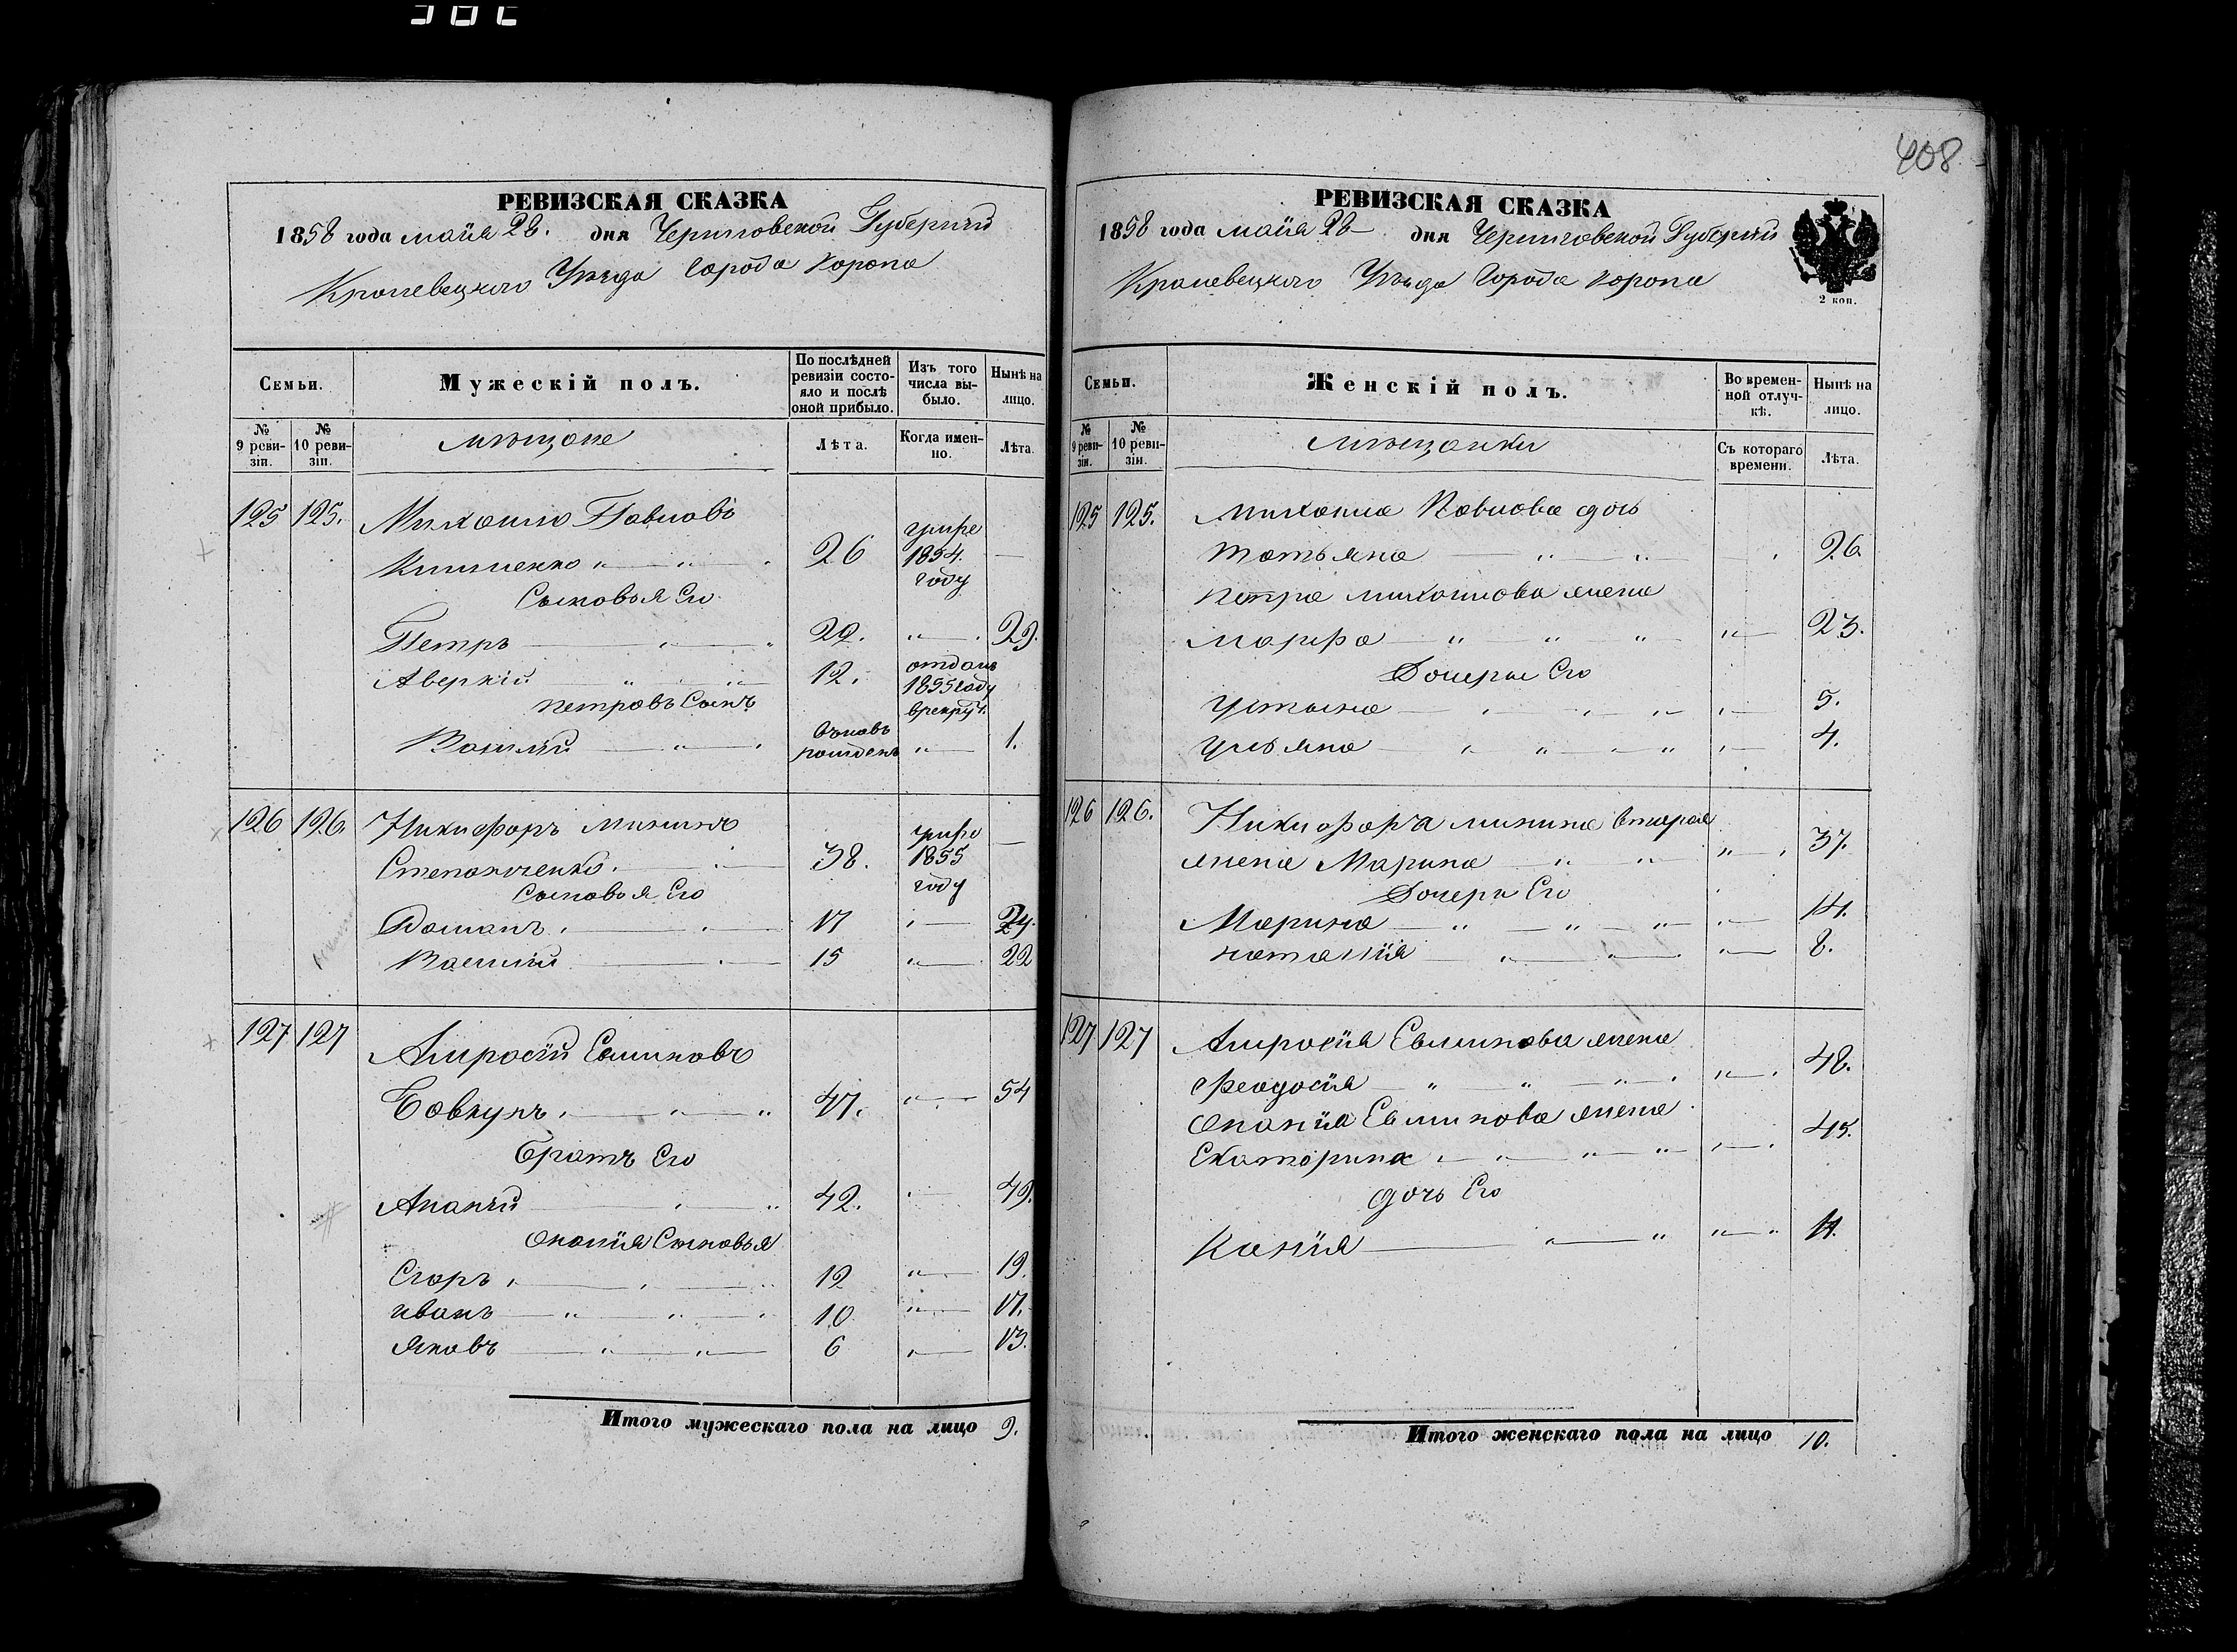 408
РЕВИЗСКАЯ СКАЗКА
1858 года майя 28. дня Черниговской Губернии
Кролевецкого Уезда Города Коропа
Семьи.
Мужескій полъ.
По послѣдней ревизіи состояло и послѣ оной прибыло.
Изъ того числа выбыло.
Нынѣ на лицо.
№ 9 ревизіи.
№ 10 ревизіи.
мещане
Лѣта.
Когда именно.
Лѣта.
125 125. Михаило Павловъ
Клименко 26 умре 1854. году —
Сыновья Его
Петръ 22. 29.
Аверкій 12. отданъ 1855 году в рекрут.
Петровъ Сынъ
Василий вновь рожденъ 1.
126 126. Никифоръ Мининъ
Степанченко 38. умре 1855 году —
Сыновья Его
17 24.
Василий 15 22
127 127 Амросий
Бовкунъ 47. 54
Братъ Его
Ананий 42. 49.
Анания Сыновья
Егоръ 12 19.
Иванъ 10 17.
Яковъ 6 13.
Итого мужескаго пола на лицо 9.
РЕВИЗСКАЯ СКАЗКА
1858 года майя 28 дня Черниговской Губернии
Кролевецкого Уезда Города Коропа
2 коп.
Семьи.
Женскій полъ.
Во временной отлучкѣ.
Нынѣ на лицо.
№ 9 ревизіи.
№ 10 ревизіи.
мещанки
Съ котораго времени.
Лѣта.
125 125. Михаила Павлова дочь
Татьяна 26.
Петра Михаилова жена
Марфа 23.
Дочери Его
Устына 5.
Ульяна 4.
126 126. Никифора Минина вторая
жена Марина 37.
Дочери Его
Марина 14.
Наталия 8.
127 127 Амросия жена
Феодосия 48.
Анания жена
Екатерина 45.
дочь Его
Ксения
Итого женскаго пола на лицо 10.